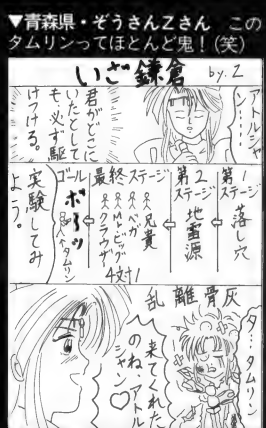 ▼青森県・ぞうさんZさん　この
タムリンってほとんど鬼！(笑)
いざ鎌倉
by.Z
アトルシャ
ン……
君がどこに
いたとして
も、必ず駆
けつける。
第1
ステージ
落し穴
第2
ステージ
地雷源
最終ステージ
兄貴
ベガ
Mr.ビッグ
クラウザー
4対1
ゴール
ボーッ
タムリン
実験してみ
よう。
乱離骨灰
タ…タムリン
来てくれた
のね、アトル
シャン♡